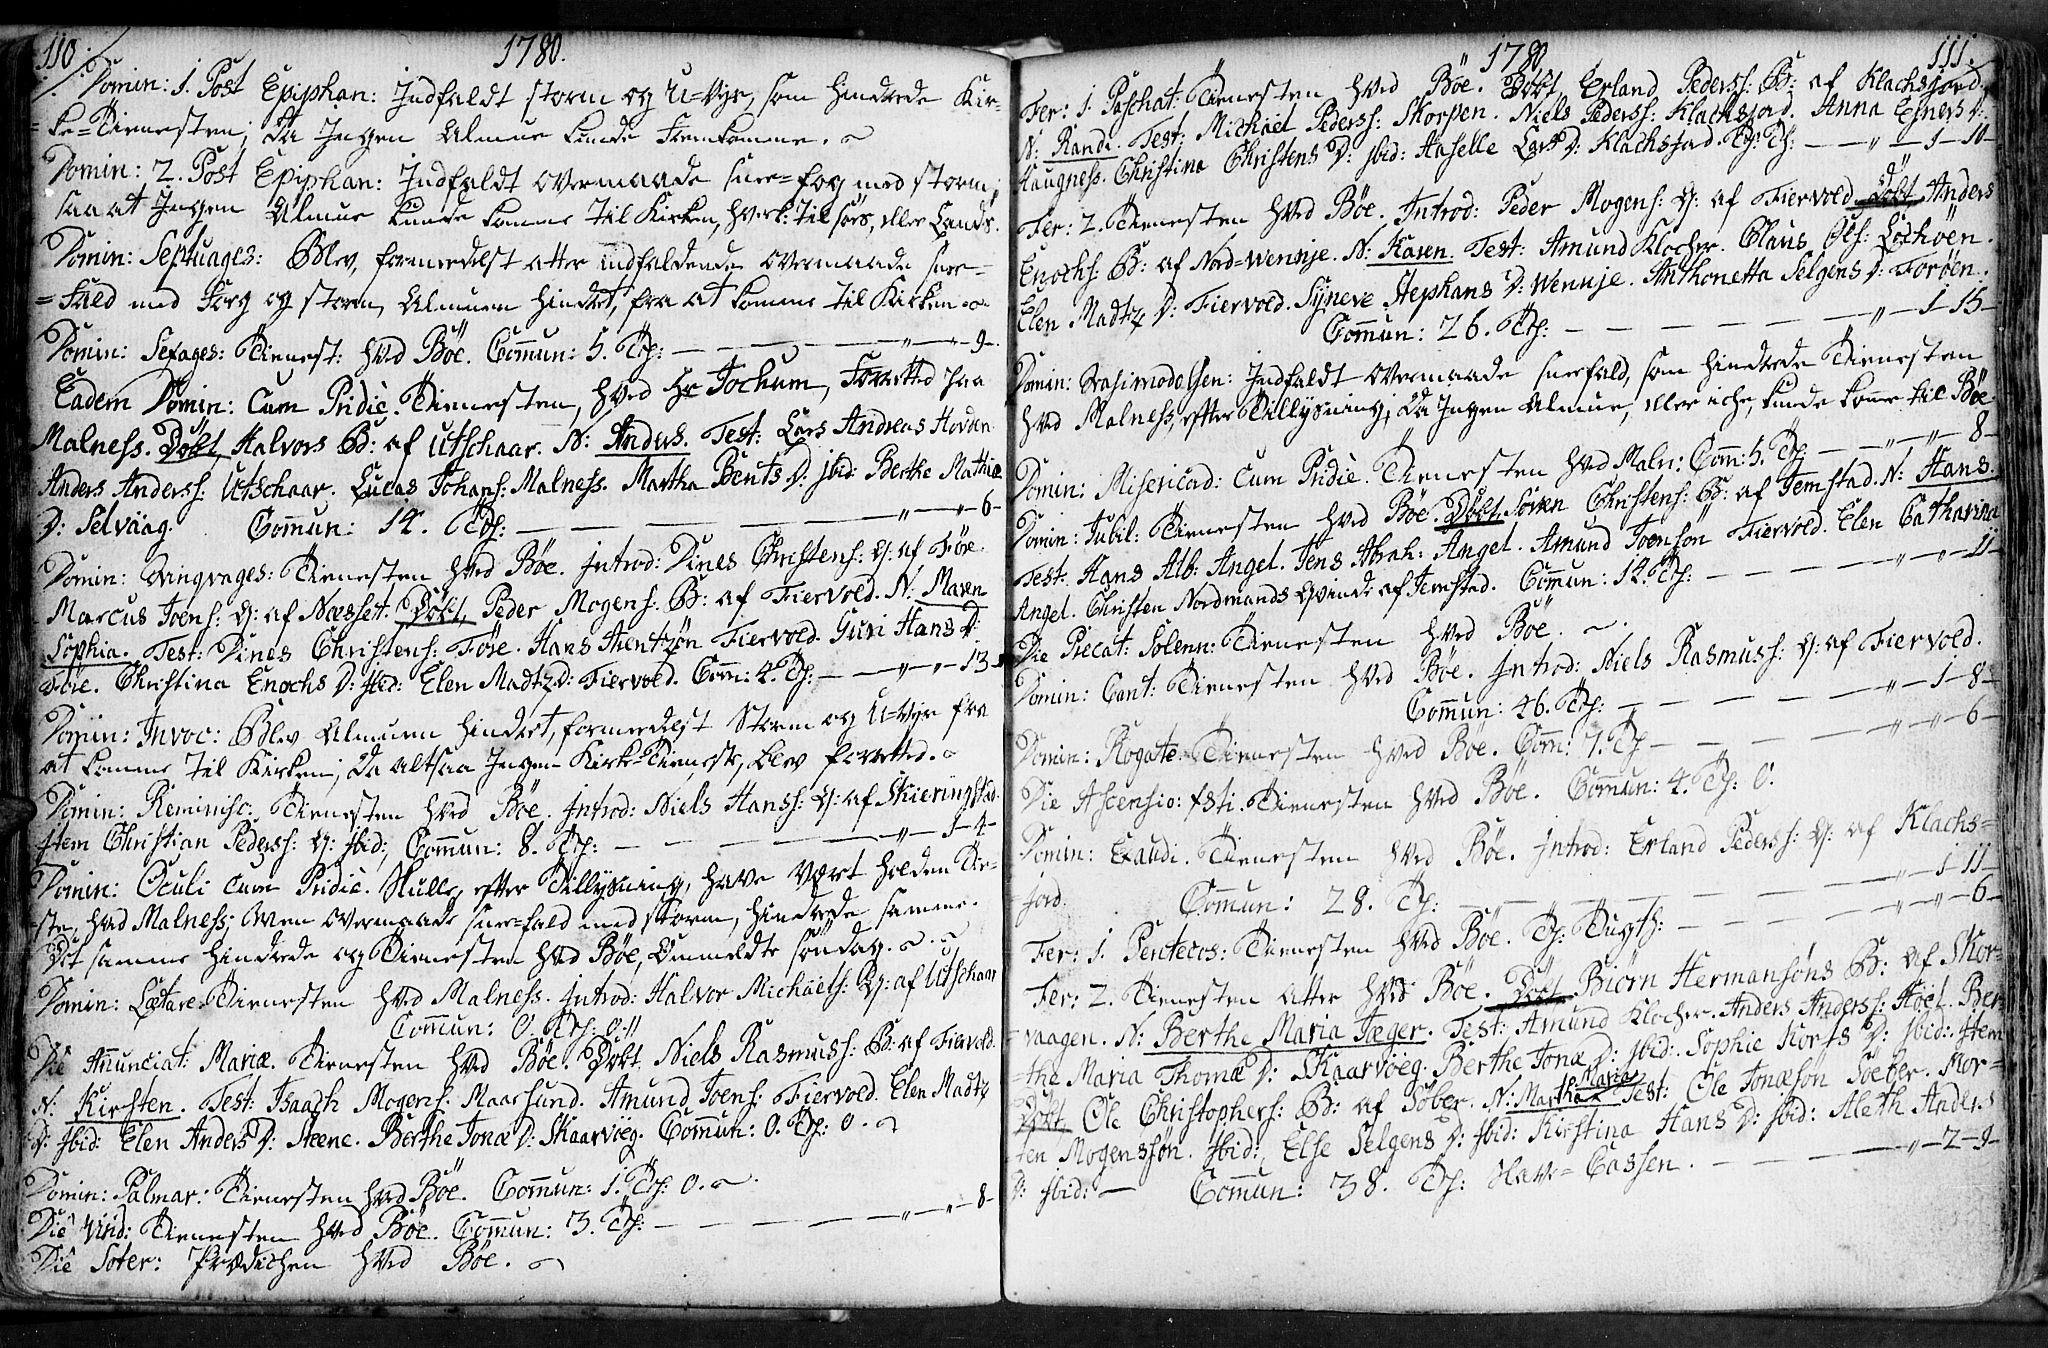 110.
1780.
Domin: 1. Post Epiphan: Indfaldt storm og U=Vejr, som hindrede Kir=
=ke=Tienesten; da Ingen Almue kunde fremkomme.
Domin: 2. Post Epiphan: Indfaldt overmaade snee=fog med storm;
saa at Ingen Almue kunde komme til Kirken, hverk: til søes, eller Lands.
Domin: Septuages: Blev, formedelst atter indfaldende overmaade snee=
=fald med fog og storm, Almuen hindret, fra at komme til Kirken.
Domin: Sexages: Tienest: hved Böe. Commun: 5. Tf: — — — „ — „ — 9 —
Eadem Domin: Cum Pridie. Tienesten, hved Hr Jochum, forretted paa
Malness. Döbt, Halvors B: af Utschaar. N: Anders. Test: Lars Andreas Hovden
Anders Anderss: Utschaar. Lucas Johans: Malness. Martha Bents D: ibid: Berthe Mathiæ
D: Selvaag. Commun: 14. Tf: — — — „ — „ — 6 —
Domin: Qvinqvages: Tienesten hved Böe. Introd: Dines Christens: Q: af Före.
Marcus Joens: Q: af Nesset. Döbt, Peder Mogens: B: af Fiervold. N: Maren
Sophia. Test: Dines Christens: Före. Hans Hentzøn Fiervold. Guri Hans D:
Föie. Christina Enochs D: ibid: Elen Madtz D: Fiervold. Com: 4. Tf: — — „ — „ — 13 —
Domin: Invoc: Blev Almuen hindret, formedelst Storm og U=Vejr fra
at komme til Kirken; da altsaa Ingen Kirke=Tieneste, blev forretted.
Domin: Reminisc: Tienesten hved Böe. Introd: Niels Hanss: Q: af Skieringstad.
Item Christian Pederss: Q: ibid; Commun: 8. Tf: — — — „ — 1 — 4 —
Domin: Oculi cum Pridie. Skulle, efter Tillysning, have vært holden Tie=
=ste, hved Malness; Men overmaade snee=fald med storm, hindrede samme.
Det samme hindrede og Tienesten hved Böe, Ommeldte søndag.
Domin: Lætare. Tienesten hved Malness. Introd: Halvor Michaels: Q: af Utschaar
Commun: 0. Tf: 0.
Die Anunciat: Mariæ. Tienesten hved Böe. Döbt Niels Rasmuss: B: af Fiervold.
N: Kirsten. Test: Isaach Mogens: Maarsund. Amund Joens: Fiervold. Elen Madtz
D: ibid: Elen Anders D: Steene. Berthe Jonæ D: Skaarvöeg. Commun: 0. Tf: 0.
Domin: Palmar: Tienesten hved Böe. Commun: 1. Tf: 0.
Die Virid: Tienesten hved Böe. Commun: 3. Tf: — — — „ — „ — 8 —
Die Soter: Prædichen hved Böe.
1780
111.
Fer: 1. Paschat: Tienesten hved Böe. Döbt, Erland Pederss: B: af Klachsjord.
N: Randi. Test: Michael Pederss: Skorpen. Niels Pederss: Klachsjord. Anna Ejners D:
Haugness. Christina Christens D: ibid: Haselle Lars D: Klachsjord. Tf: — — „ — 1 — 10 —
Fer: 2. Tienesten hved Böe. Introd: Peder Mogens: Q: af Fiervold. Döbt Anders
Enochs: B: af Nord=Wennje. N: Karen. Test: Amund Klocher. Claus Ols: Lochöen.
Elen Madtz D: Fiervold. Syneve Stephans D: Wennje. Anthonetta Selgens D: Foröen.
Commun: 26. Tf: — — — „ — 1 — 15 —
Domin: Qvasimodogen: Indfaldt overmaade sneefald, som hindrede Tienesten
hved Malness, efter Tillysning; da Ingen Almue, eller iche, kunde kome til Böe.
Domin: Misericad: Cum Pridie. Tienesten hved Maln: Com: 5. Tf — „ — „ — 8 —
Domin: Jubil: Tienesten hved Böe. Döbt Sören Christens: B: af Jemstad. N: Hans.
Test: Hans Alb: Angel. Jens Abrah: Angel. Amund Joensøn Fiervold. Elen Catharina
Angel. Christen Nordmands Qvinde af Jemsted. Commun: 14. Tf: — — „ — „ — 11 —
Die Precat: Solenn: Tienesten hved Böe.
Domin: Cant: Tienesten hved Böe. Introd: Niels Rasmuss: Q: af Fiervold.
Commun: 46. Tf: — — — „ — 1 — 8 —
Domin: Rogate. Tienesten hved Böe. Com: 7. Tf — — „ — „ — 6 —
Die Ascensio: Xsti. Tienesten hved Böe. Commun: 4. Tf: 0.
Domin: Exaudi. Tienesten hved Böe. Introd: Erland Pederss: Q: af Klachs=
jord. Commun: 28. Tf: — — — „ — 1 — 11 —
Fer: 1. Pentecos: Tienesten hved Böe. Tf: — — „ — „ — 6 —
Fer: 2. Tienesten atter hved Böe. Döbt Biörn Hermansöns B: af Skor=
=vaagen. N: Berthe Maria Jæger. Test: Amund Klocher. Anders Anderss: Höel. Ber
=the Maria Thomæ D: Skaarvöeg. Berthe Jonæ D: ibid: Sophie Korts D: ibid: Item
Döbt, Ole Christophers: B: af Söber. N: Martha Maria Test: Ole Jonæsøn Söeber. Mor=
ten Mogenssøn. ibid: Else Selgens D: ibid: Kirstina Hans D: ibid: Aleth Anders
D: ibid: — Commun: 38. Tf: Slave=Cassen. — — „ — 2 — 9 —